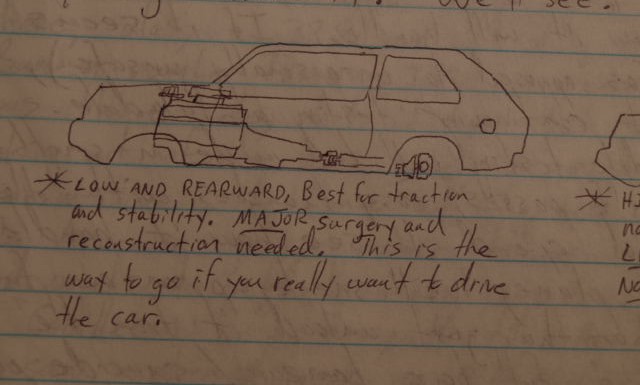 We'll see.
* LOW AND REARWARD, Best for traction
and stability. MAJOR surgery and
reconstruction needed. This is the
way to go if you really want to drive
the car.
* HI
no
L
No